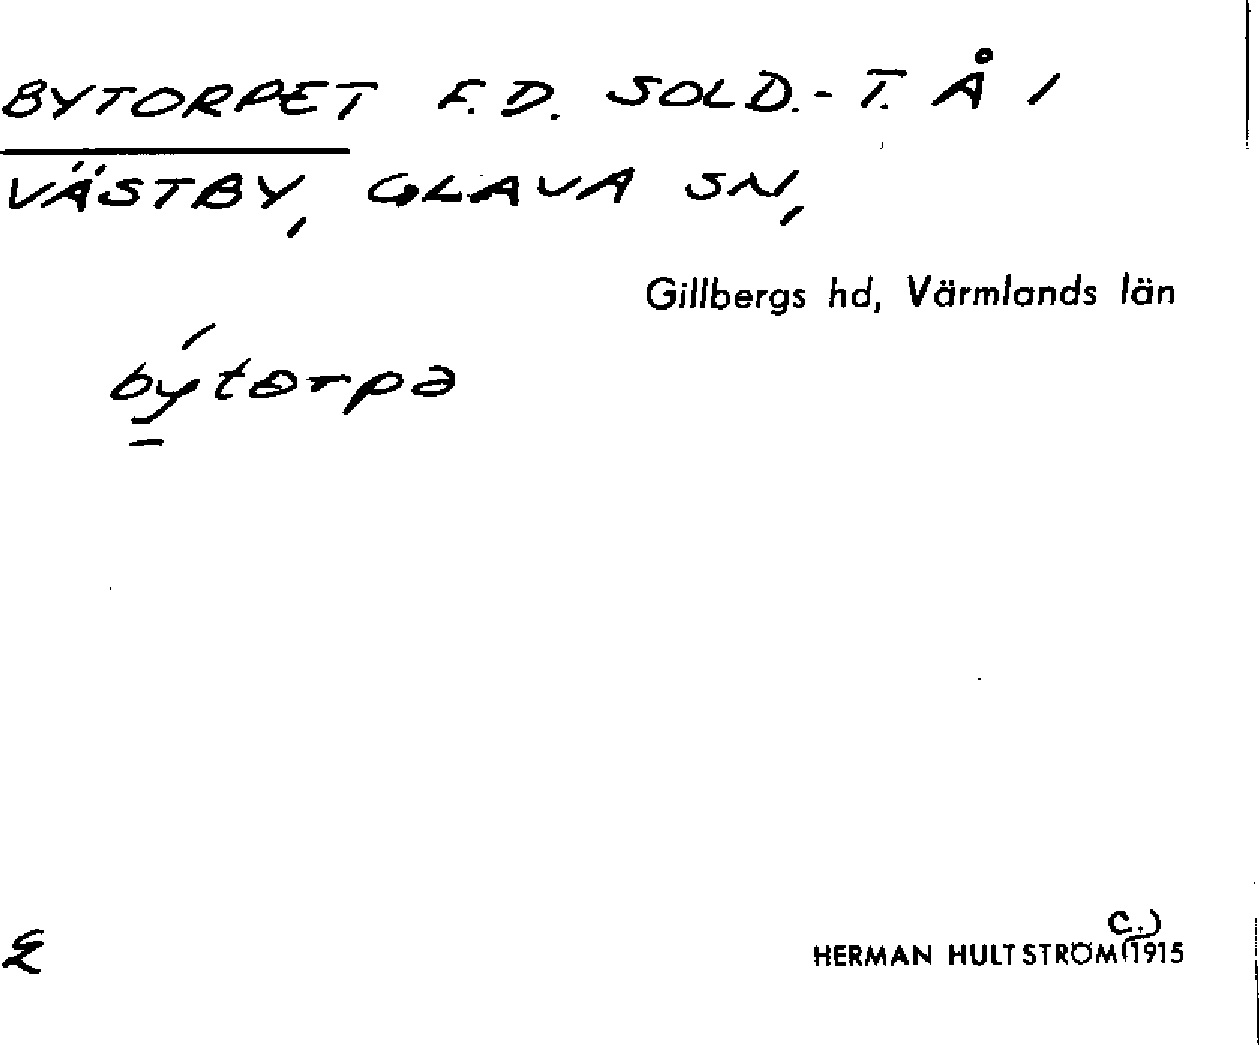 BYTORPET F.D. SOLD.-T. Å 1
VÄSTBY, GLAVA SN,
Gillbergs hd, Värmlands län
bý̱torpə
HERMAN HULTSTRÖM (C.) 1915